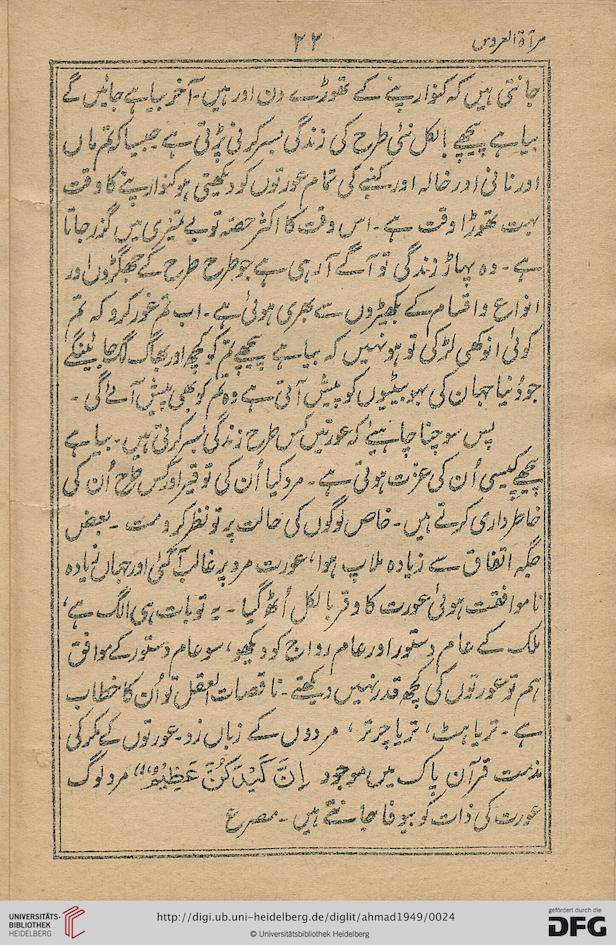 مرآۃ العروس
۲۲
جانتی ہیں کہ کنوارپنے کے تھوڑے دن اور ہیں۔ آخر بیاہے جائیں گے
بیاہے پیچھے بالکل نئی طرح کی زندگی بسر کرنی پڑتی ہے جیسا کہ تم ماں
اور نانی اور خالہ اور کنبے کی تمام عورتوں کو دیکھتی ہو کنوارپنے کا وقت
بہت تھوڑا وقت ہے۔ اس وقت کا اکثر حصہ تو بے تمیزی میں گزر جاتا
ہے۔ وہ پہاڑ زندگی تو آگے آ رہی ہے جو طرح طرح کے جھگڑوں اور
انواع و اقسام کے بکھیڑوں سے بھری ہوئی ہے۔ اب تم غور کرو کہ تم
کوئی انوکھی لڑکی تو ہو نہیں کہ بیاہے پیچھے تم کو کچھ اور بھاگ لگ جائینگے
جو دُنیا جہان کی بہو بیٹیوں کو پیش آتی ہے وہ تم کو بھی پیش آئے گی۔
پس سوچنا چاہیے کہ عورتیں کس طرح زندگی بسر کرتی ہیں۔ بیاہے
پیچھے کیسی اُن کی عزت ہوتی ہے۔ مرد کیا اُن کی توقیر اور کس طرح اُن کی
خاطرداری کرتے ہیں۔ خاص لوگوں کی حالت پر تو نظر کرو مت۔ بعض
جگہ اتفاق سے زیادہ ملاپ ہوا، عورت مرد پر غالب آ گئی اور جہاں زیادہ
ناموافقت ہوئی عورت کا وقر بالکل اُٹھ گیا۔ یہ تو بات ہی الگ ہے،
ملک کے عام دستور اور عام رواج کو دیکھو، سو عام دستور کے موافق
ہم تو عورتوں کی کچھ قدر نہیں دیکھتے۔ ناقصات العقل تو اُن کا خطاب
ہے۔ تریا ہٹ، تریا چرتر، مردوں کے زباں زد۔ عورتوں کے مکر کی
مذمت قرآن پاک میں موجود إِنَّ كَيْدَكُنَّ عَظِيْمٌ،، مرد لوگ
عورت کی ذات کو بیوفا جانتے ہیں۔ مصرع
UNIVERSITÄTS-
BIBLIOTHEK
HEIDELBERG
http://digi.ub.uni-heidelberg.de/diglit/ahmad1949/0024
© Universitätsbibliothek Heidelberg
gefördert durch die
DFG